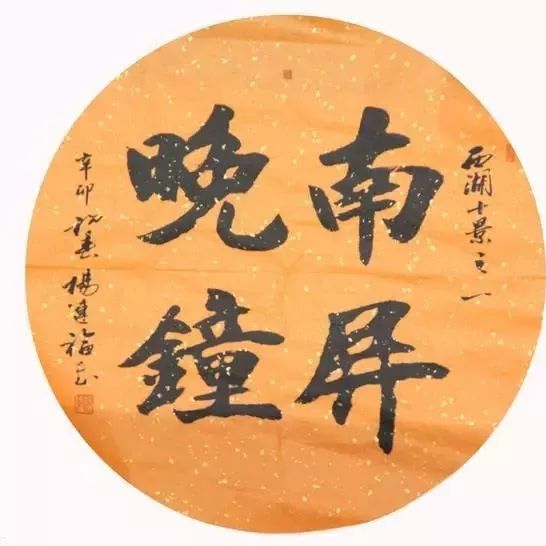 西湖十景之一
南屏
晚鐘
辛卯初春楊建福書